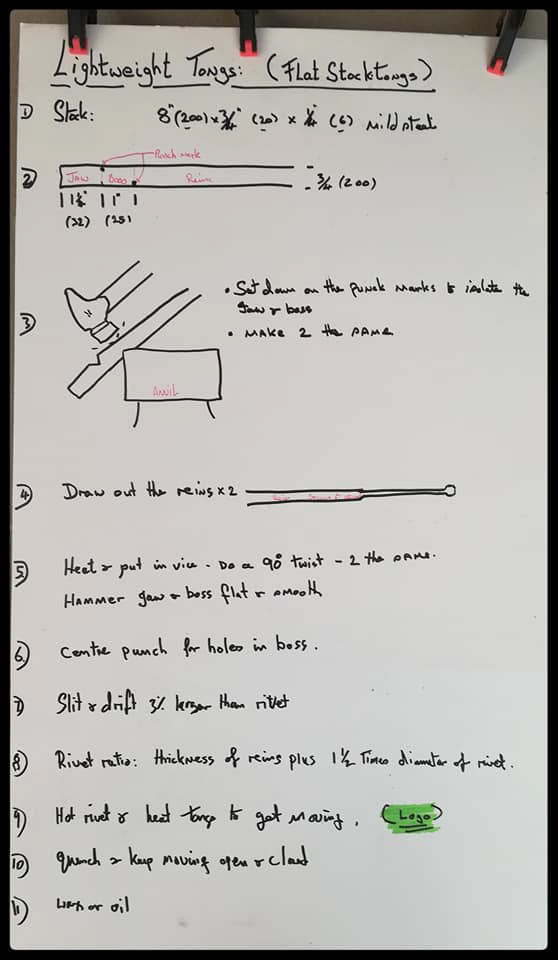 Lightweight Tongs: (Flat Stock tongs)
1) Stock: 8" (200) x 3/4" (20) x 1/4" (6) Mild steel
Punch mark
2) JAW Boss Reins 3/4 (200)
1 1/4" 1"
(32) (25)
3) • Set down on the punch marks to isolate the
Jaw & boss
• MAKE 2 the SAME
ANVIL
4) Draw out the reins x 2
5) Heat & put in vice - Do a 90° twist - 2 the SAME.
HAMMER jaw & boss flat & smooth
6) Centre punch for holes in boss.
7) Slit & drift 3% larger than rivet
8) Rivet ratio: thickness of reins plus 1 1/2 Times diameter of rivet.
9) Hot rivet & heat tongs to get moving. (Logo)
10) quench & keep moving open & closed
11) wax or oil